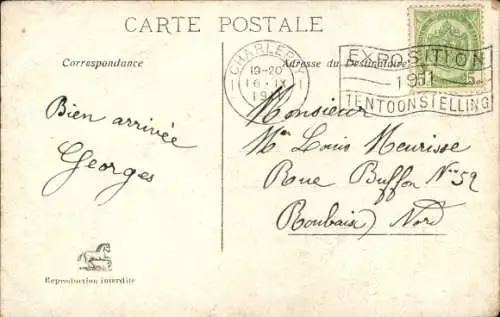 CARTE POSTALE
Correspondance
Adresse du Destinataire
CHARLEROY
19-20
16 IX
EXPOSITION
1911
TENTOONSTELLING
5
Bien arrivée
Georges
Monsieur
Mr Louis Meurisse
Rue Buffon No 52
Roubaix) Nord
Reproduction interdite